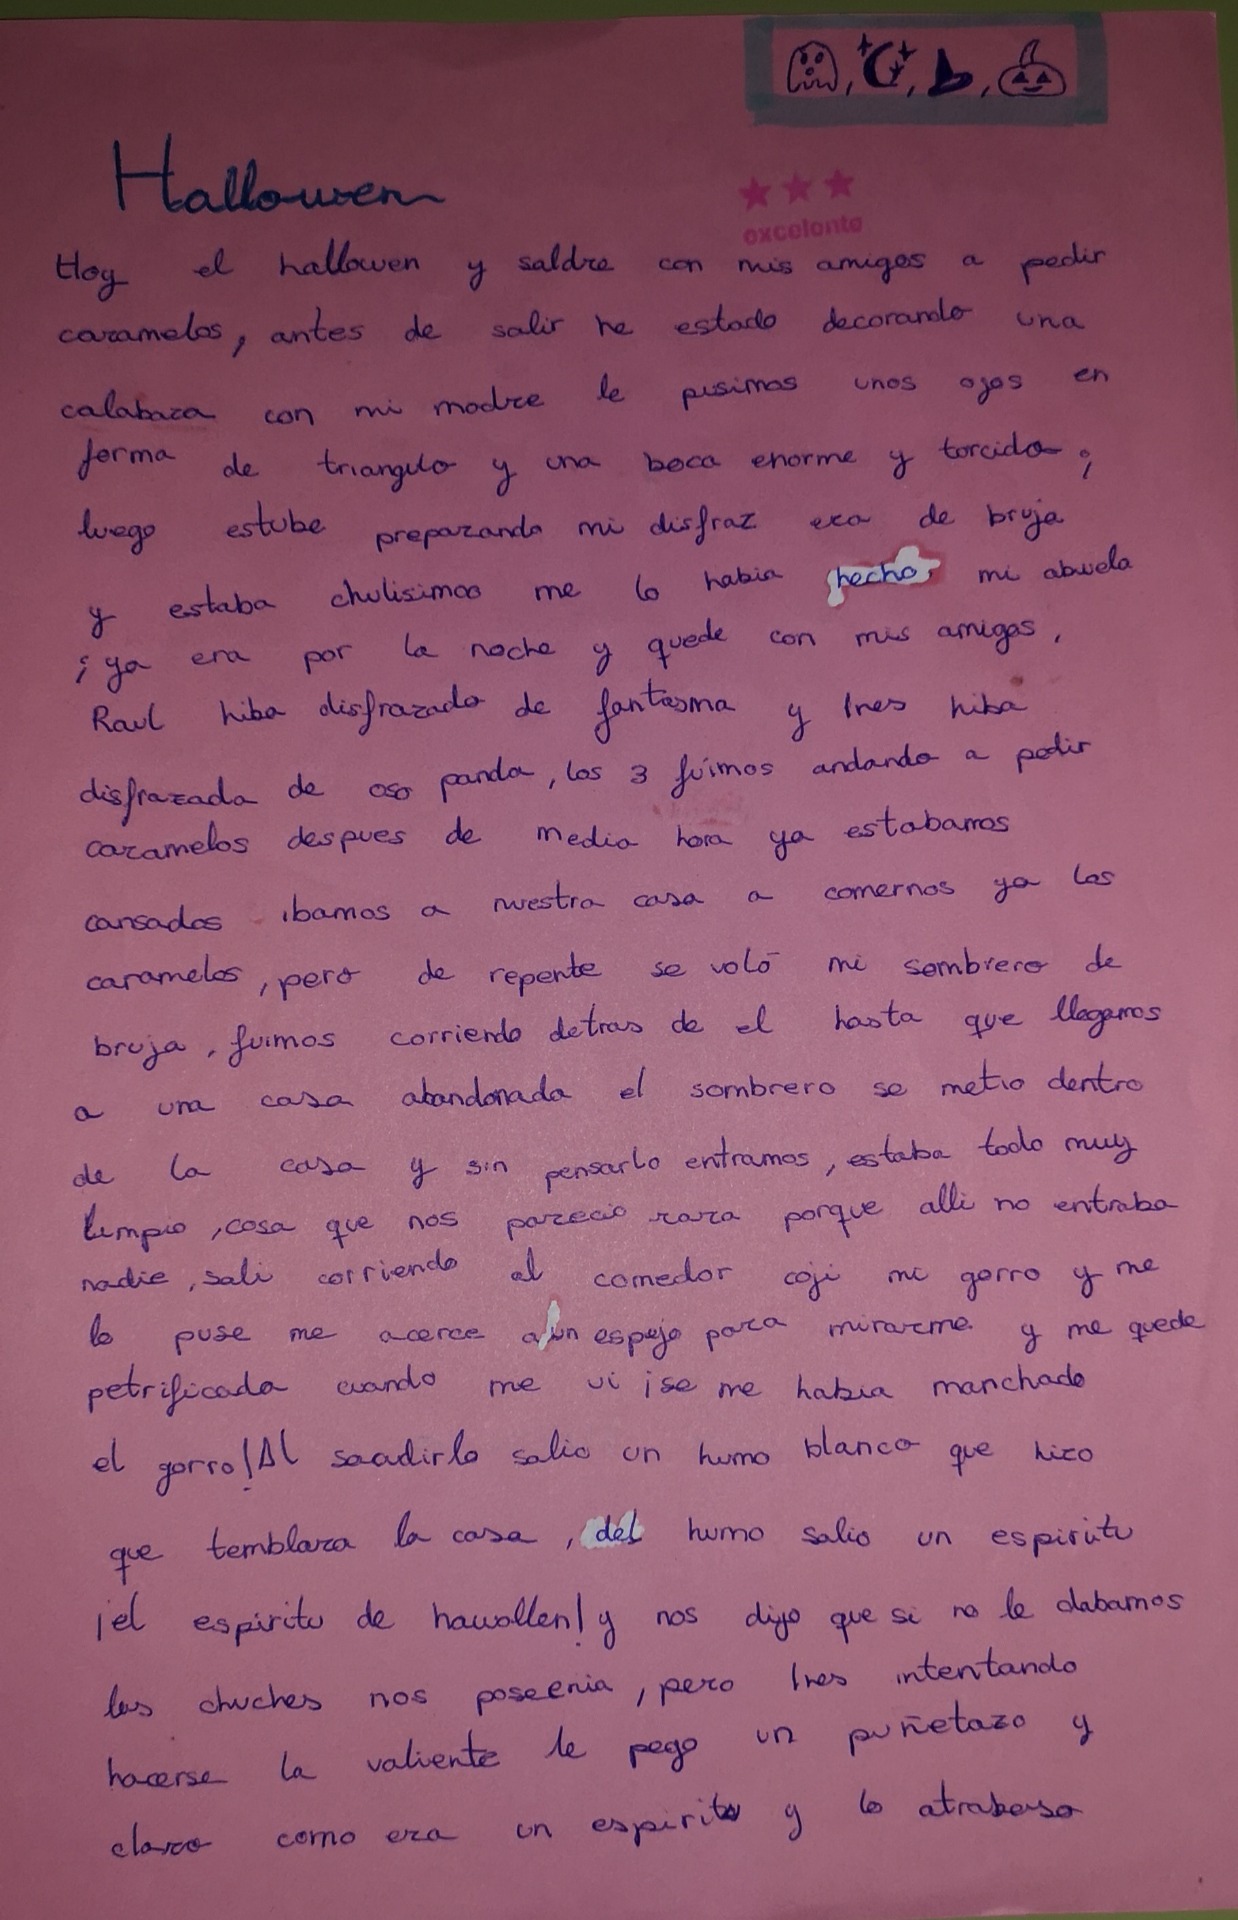 Hallowen
excelente
Hoy el hallowen y saldre con mis amigos a pedir
caramelos, antes de salir he estado decorando una
calabaza con mi madre le pusimos unos ojos en
forma de triangulo y una boca enorme y torcida ;
luego estube preparando mi disfraz era de bruja
y estaba chulisimoo me lo habia hecho, mi abuela
; ya era por la noche y quede con mis amigos,
Raul hiba disfrazado de fantasma y Ines hiba
disfrazada de oso panda, los 3 fuimos andando a pedir
caramelos despues de media hora ya estabamos
cansados ibamos a nuestra casa a comernos ya los
caramelos, pero de repente se voló mi sombrero de
bruja, fuimos corriendo detras de el hasta que llegamos
a una casa abandonada el sombrero se metio dentro
de la casa y sin pensarlo entramos, estaba todo muy
limpio, cosa que nos pareció rara porque alli no entraba
nadie, sali corriendo al comedor coji mi gorro y me
lo puse me acerce a un espejo para mirarme y me quede
petrificada cuando me vi ¡se me habia manchado
el gorro! Al sacudirlo salio un humo blanco que hizo
que temblara la casa, del humo salio un espiritu
¡el espiritu de hawollen! y nos dijo que si no le dabamos
las chuches nos poseeria, pero Ines intentando
hacerse la valiente le pego un puñetazo y
claro como era un espiritu y lo atrabeso